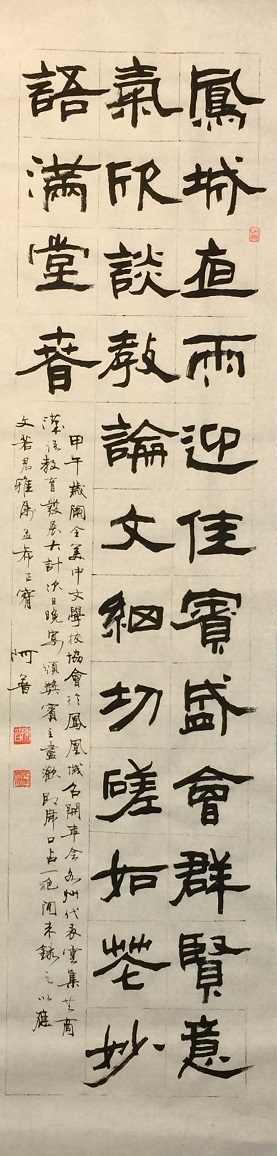 鳳城直雨迎佳賓盛會群賢意
氣欣談教論文細切磋如花妙
語滿堂春
甲午歲闌全美中文學校協會於鳳凰城召開年會各州代表雲集共商
漢語教育發展大計次日晚宴頒獎賓主盡歡即席口占一絕錄之以應
文若君雅屬並希正
阿魯